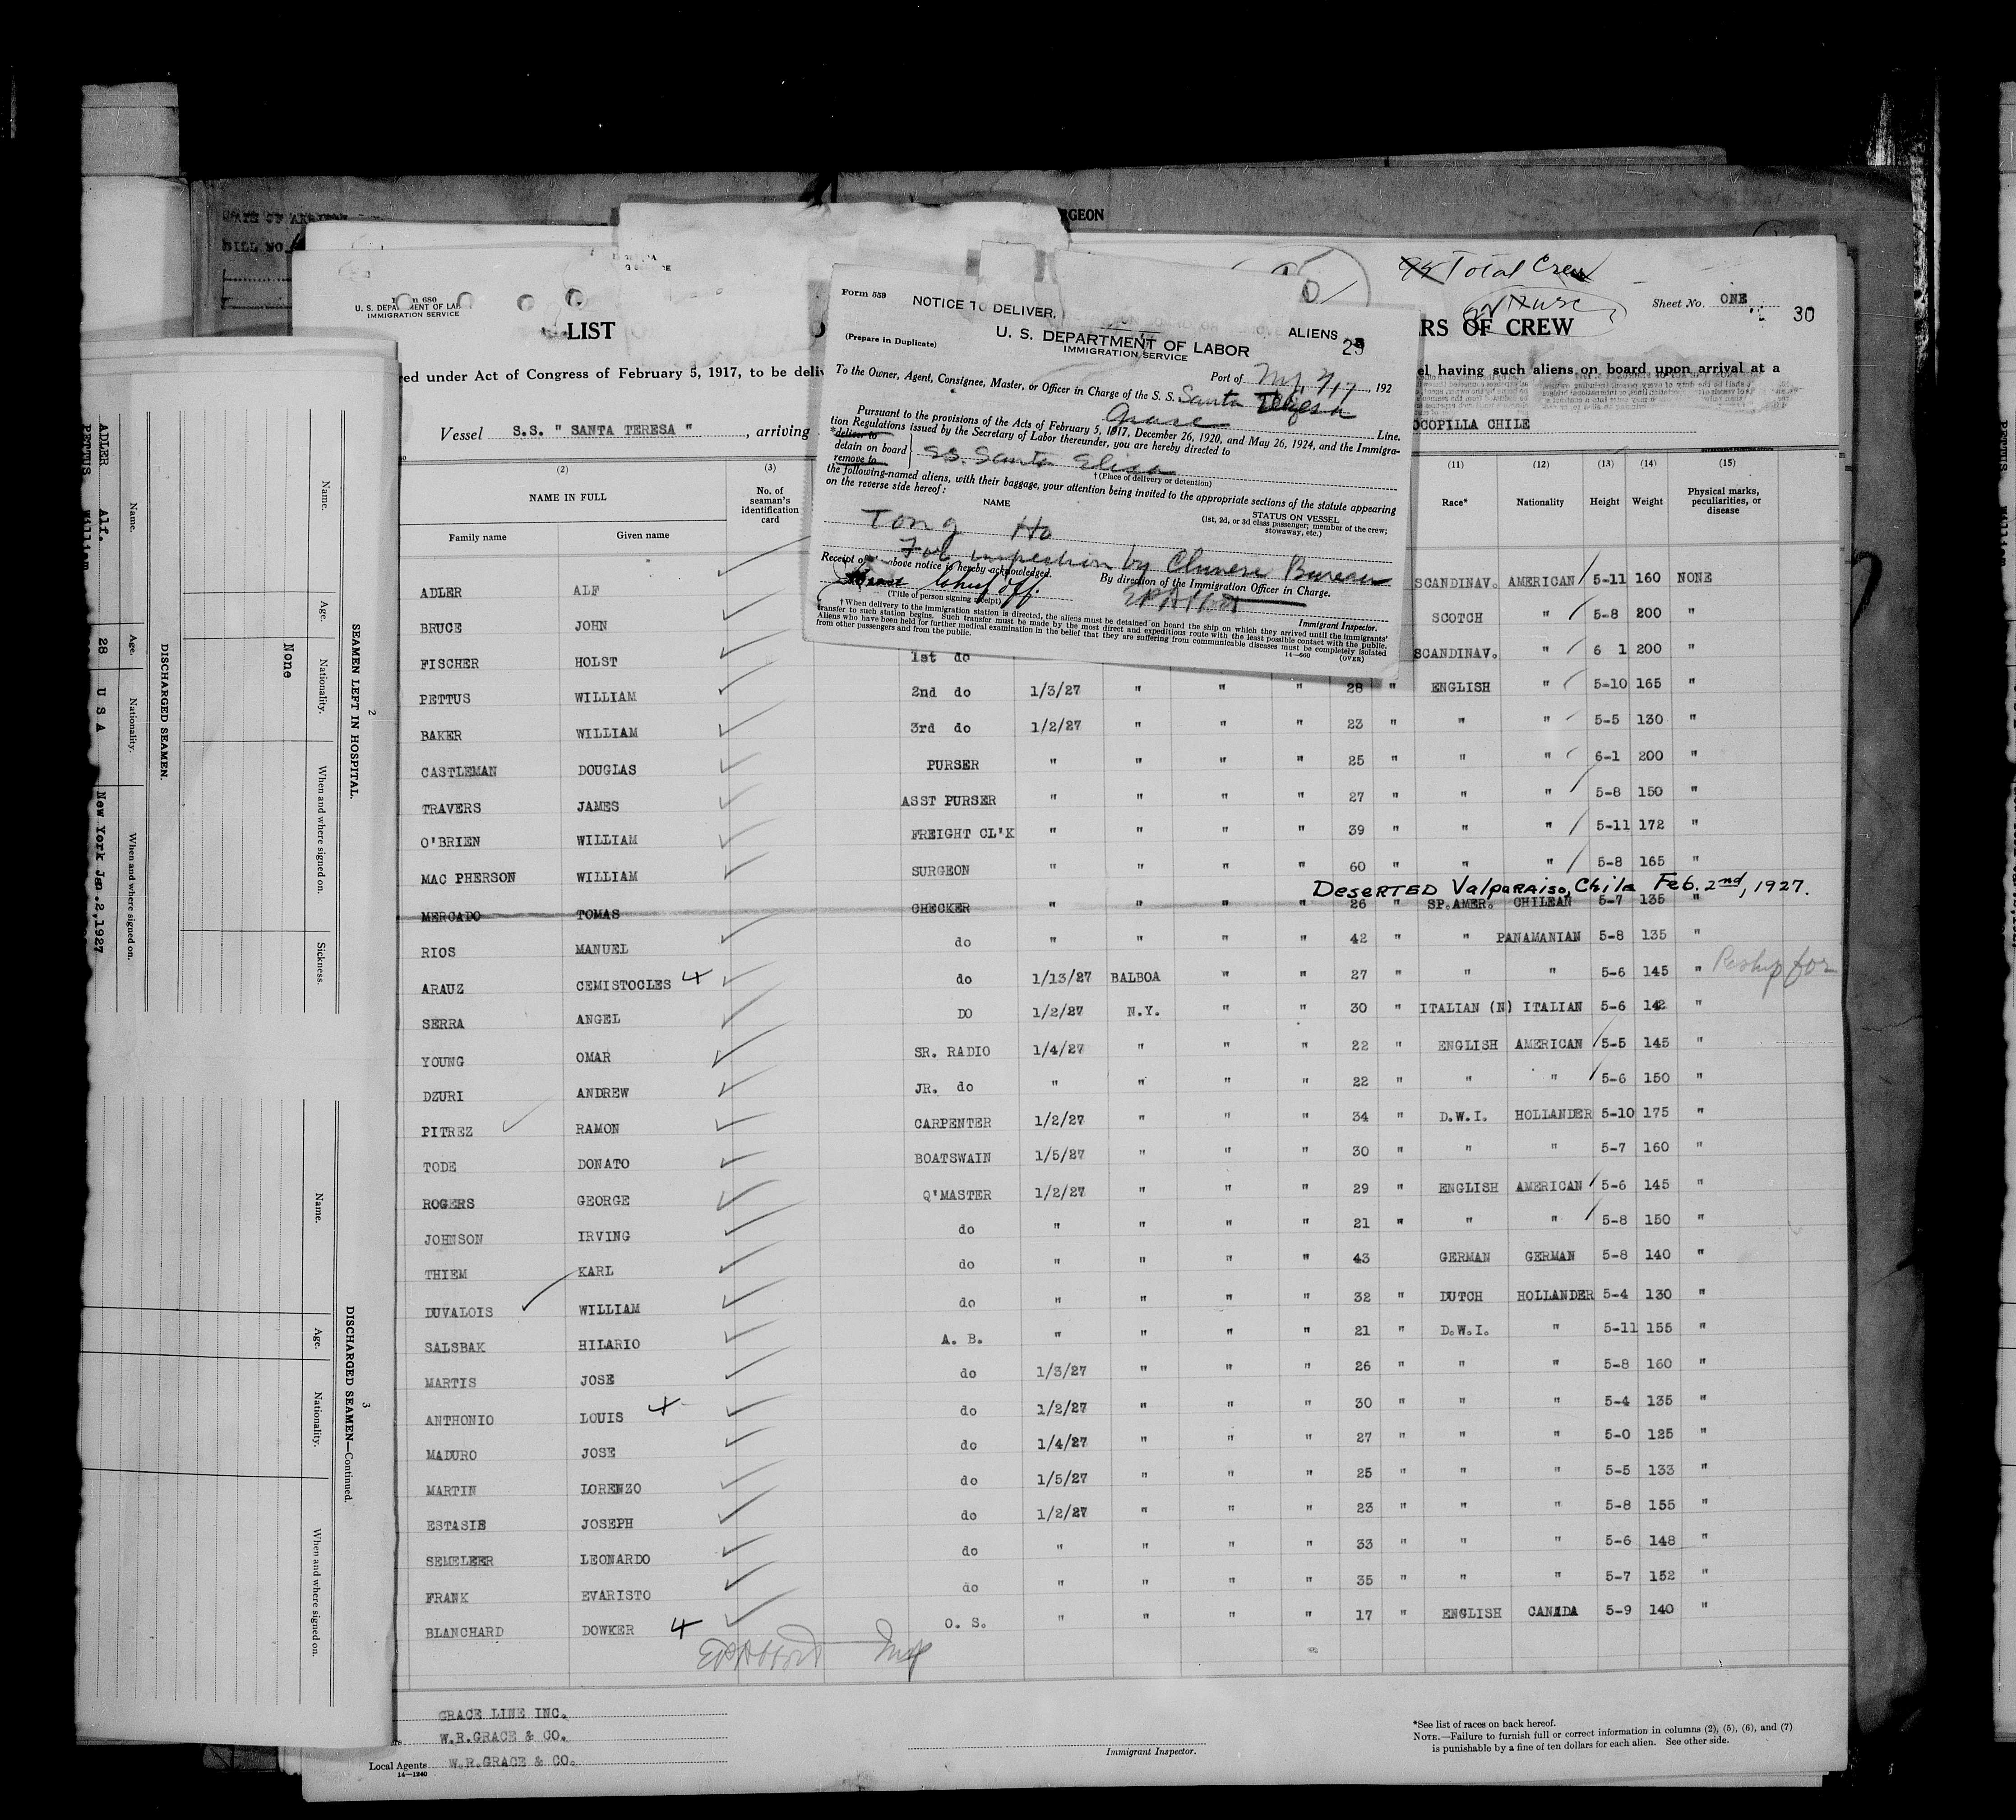 RGEON
BILL NO.
Total Crew
U. S. DEPARTMENT OF LAB
IMMIGRATION SERVICE
Sheet No. ONE
30
LIST
RS OF CREW
red under Act of Congress of February 5, 1917, to be deliv
el having such aliens on board upon arrival at a
Vessel S.S. " SANTA TERESA " , arriving
OCOPILLA CHILE
Form 559
NOTICE TO DELIVER,
ALIENS
(Prepare in Duplicate)
U. S. DEPARTMENT OF LABOR
IMMIGRATION SERVICE
Port of N.Y. 2/17, 192
To the Owner, Agent, Consignee, Master, or Officer in Charge of the S. S. Santa
Grace Line.
Pursuant to the provisions of the Acts of February 5, 1917, December 26, 1920, and May 26, 1924, and the Immigra-
tion Regulations issued by the Secretary of Labor thereunder, you are hereby directed to
*deliver to
detain on board
remove to
SS. Santa Elisa
†(Place of delivery or detention)
the following-named aliens, with their baggage, your attention being invited to the appropriate sections of the statute appearing
on the reverse side hereof:
NAME
STATUS ON VESSEL
(1st, 2d, or 3d class passenger; member of the crew;
stowaway, etc.)
Tong Ho
For inspection by Chinese Bureau
Receipt of above notice is hereby acknowledged.
By direction of the Immigration Officer in Charge.
Chief Off.
(Title of person signing receipt)
Immigrant Inspector.
† When delivery to the immigration station is directed, the aliens must be detained on board the ship on which they arrived until the immigrants'
transfer to such station begins. Such transfer must be made by the most direct and expeditious route with the least possible contact with the public.
Aliens who have been held for further medical examination in the belief that they are suffering from communicable diseases must be completely isolated
from other passengers and from the public.
14—660
(OVER)
(2) (3) (11) (12) (13) (14) (15)
NAME IN FULL
No. of seaman's identification card
Race* Nationality Height Weight Physical marks, peculiarities, or disease
Family name Given name
ADLER ALF SCANDINAV. AMERICAN 5-11 160 NONE
BRUCE JOHN SCOTCH " 5-8 200 "
FISCHER HOLST 1st do SCANDINAV. " 6 1 200 "
PETTUS WILLIAM 2nd do 1/3/27 " " " 28 " ENGLISH " 5-10 165 "
BAKER WILLIAM 3rd do 1/2/27 " " " 23 " " " 5-5 130 "
CASTLEMAN DOUGLAS PURSER " " " " 25 " " " 6-1 200 "
TRAVERS JAMES ASST PURSER " " " " 27 " " " 5-8 150 "
O'BRIEN WILLIAM FREIGHT CL'K " " " " 39 " " " 5-11 172 "
MAC PHERSON WILLIAM SURGEON " " " " 60 " " " 5-8 165 "
DESERTED Valparaiso, Chile Feb. 2nd, 1927.
MERCADO TOMAS CHECKER " " " " 26 " SP.AMER. CHILEAN 5-7 135 "
RIOS MANUEL do " " " " 42 " " PANAMANIAN 5-8 135 "
ARAUZ CEMISTOCLES 4 do 1/13/27 BALBOA " " 27 " " " 5-6 145 " Reship for
SERRA ANGEL DO 1/2/27 N.Y. " " 30 " ITALIAN (N) ITALIAN 5-6 142 "
YOUNG OMAR SR. RADIO 1/4/27 " " " 22 " ENGLISH AMERICAN 5-5 145 "
DZURI ANDREW JR. do " " " " 22 " " " 5-6 150 "
PITREZ RAMON CARPENTER 1/2/27 " " " 34 " D.W.I. HOLLANDER 5-10 175 "
TODE DONATO BOATSWAIN 1/5/27 " " " 30 " " " 5-7 160 "
ROGERS GEORGE Q'MASTER 1/2/27 " " " 29 " ENGLISH AMERICAN 5-6 145 "
JOHNSON IRVING do " " " " 21 " " " 5-8 150 "
THIEM KARL do " " " " 43 GERMAN GERMAN 5-8 140 "
DUVALOIS WILLIAM do " " " " 32 " DUTCH HOLLANDER 5-4 130 "
SALSBAK HILARIO A. B. " " " " 21 " D.W.I. " 5-11 155 "
MARTIS JOSE do 1/3/27 " " " 26 " " " 5-8 160 "
ANTHONIO LOUIS 4 do 1/2/27 " " " 30 " " " 5-4 135 "
MADURO JOSE do 1/4/27 " " " 27 " " " 5-0 125 "
MARTIN LORENZO do 1/5/27 " " " 25 " " " 5-5 133 "
ESTASIE JOSEPH do 1/2/27 " " " 23 " " " 5-8 155 "
SEMELEER LEONARDO do " " " " 33 " " " 5-6 148 "
FRANK EVARISTO do " " " " 35 " " " 5-7 152 "
BLANCHARD DOWKER 4 O. S. " " " " 17 " ENGLISH CANADA 5-9 140 "
GRACE LINE INC.
W.R.GRACE & CO.
Local Agents W.R.GRACE & CO.
14—1240
Immigrant Inspector.
*See list of races on back hereof.
NOTE.—Failure to furnish full or correct information in columns (2), (5), (6), and (7)
is punishable by a fine of ten dollars for each alien. See other side.
2
SEAMEN LEFT IN HOSPITAL.
Name. Age. Nationality. When and where signed on. Sickness.
None
DISCHARGED SEAMEN.
Name. Age. Nationality. When and where signed on.
ADLER Alf. 28 U S A New York Jan.2,1927
PETTUS William
3
DISCHARGED SEAMEN—Continued.
Name. Age. Nationality. When and where signed on.